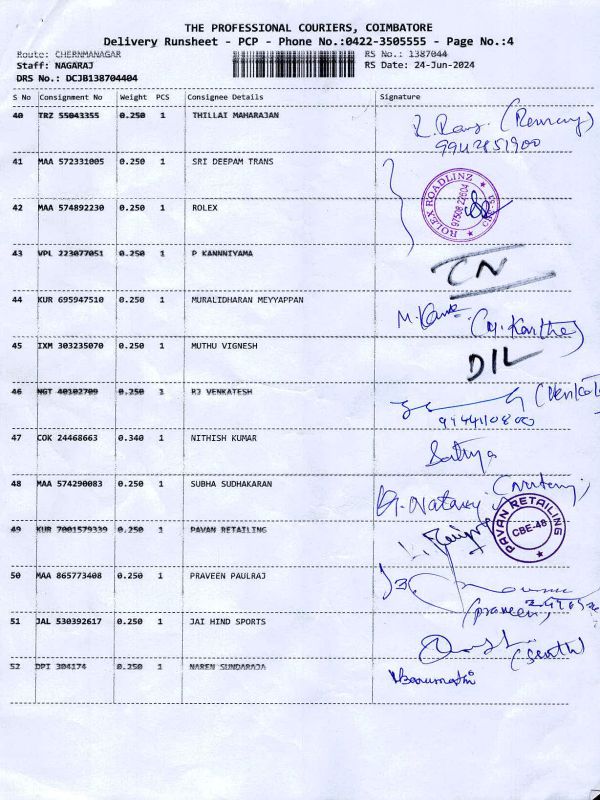 THE PROFESSIONAL COURIERS, COIMBATORE
Delivery Runsheet - PCP - Phone No.:0422-3505555 - Page No.:4
Route: CHERNMANAGAR RS No.: 1387044
Staff: NAGARAJ RS Date: 24-Jun-2024
DRS No.: DCJB138704404
S No Consignment No Weight PCS Consignee Details Signature
40 TRZ 55043355 0.250 1 THILLAI MAHARAJAN
9942851900
41 MAA 572331005 0.250 1 SRI DEEPAM TRANS
42 MAA 574892230 0.250 1 ROLEX
ROLEX ROADLINZ
43 VPL 223077051 0.250 1 P KANNNIYAMA
CN
44 KUR 695947510 0.250 1 MURALIDHARAN MEYYAPPAN
45 IXM 303235070 0.250 1 MUTHU VIGNESH
DIL
46 NGT 40102709 0.250 1 RJ VENKATESH
9944110800
47 COK 24468663 0.340 1 NITHISH KUMAR
Sathya
48 MAA 574290083 0.250 1 SUBHA SUDHAKARAN
49 KUR 7001579339 0.250 1 PAVAN RETAILING
PAVAN RETAILING
CBE-48
50 MAA 865773408 0.250 1 PRAVEEN PAULRAJ
(praveen)
51 JAL 530392617 0.250 1 JAI HIND SPORTS
52 DPI 304174 0.250 1 NAREN SUNDARAJA